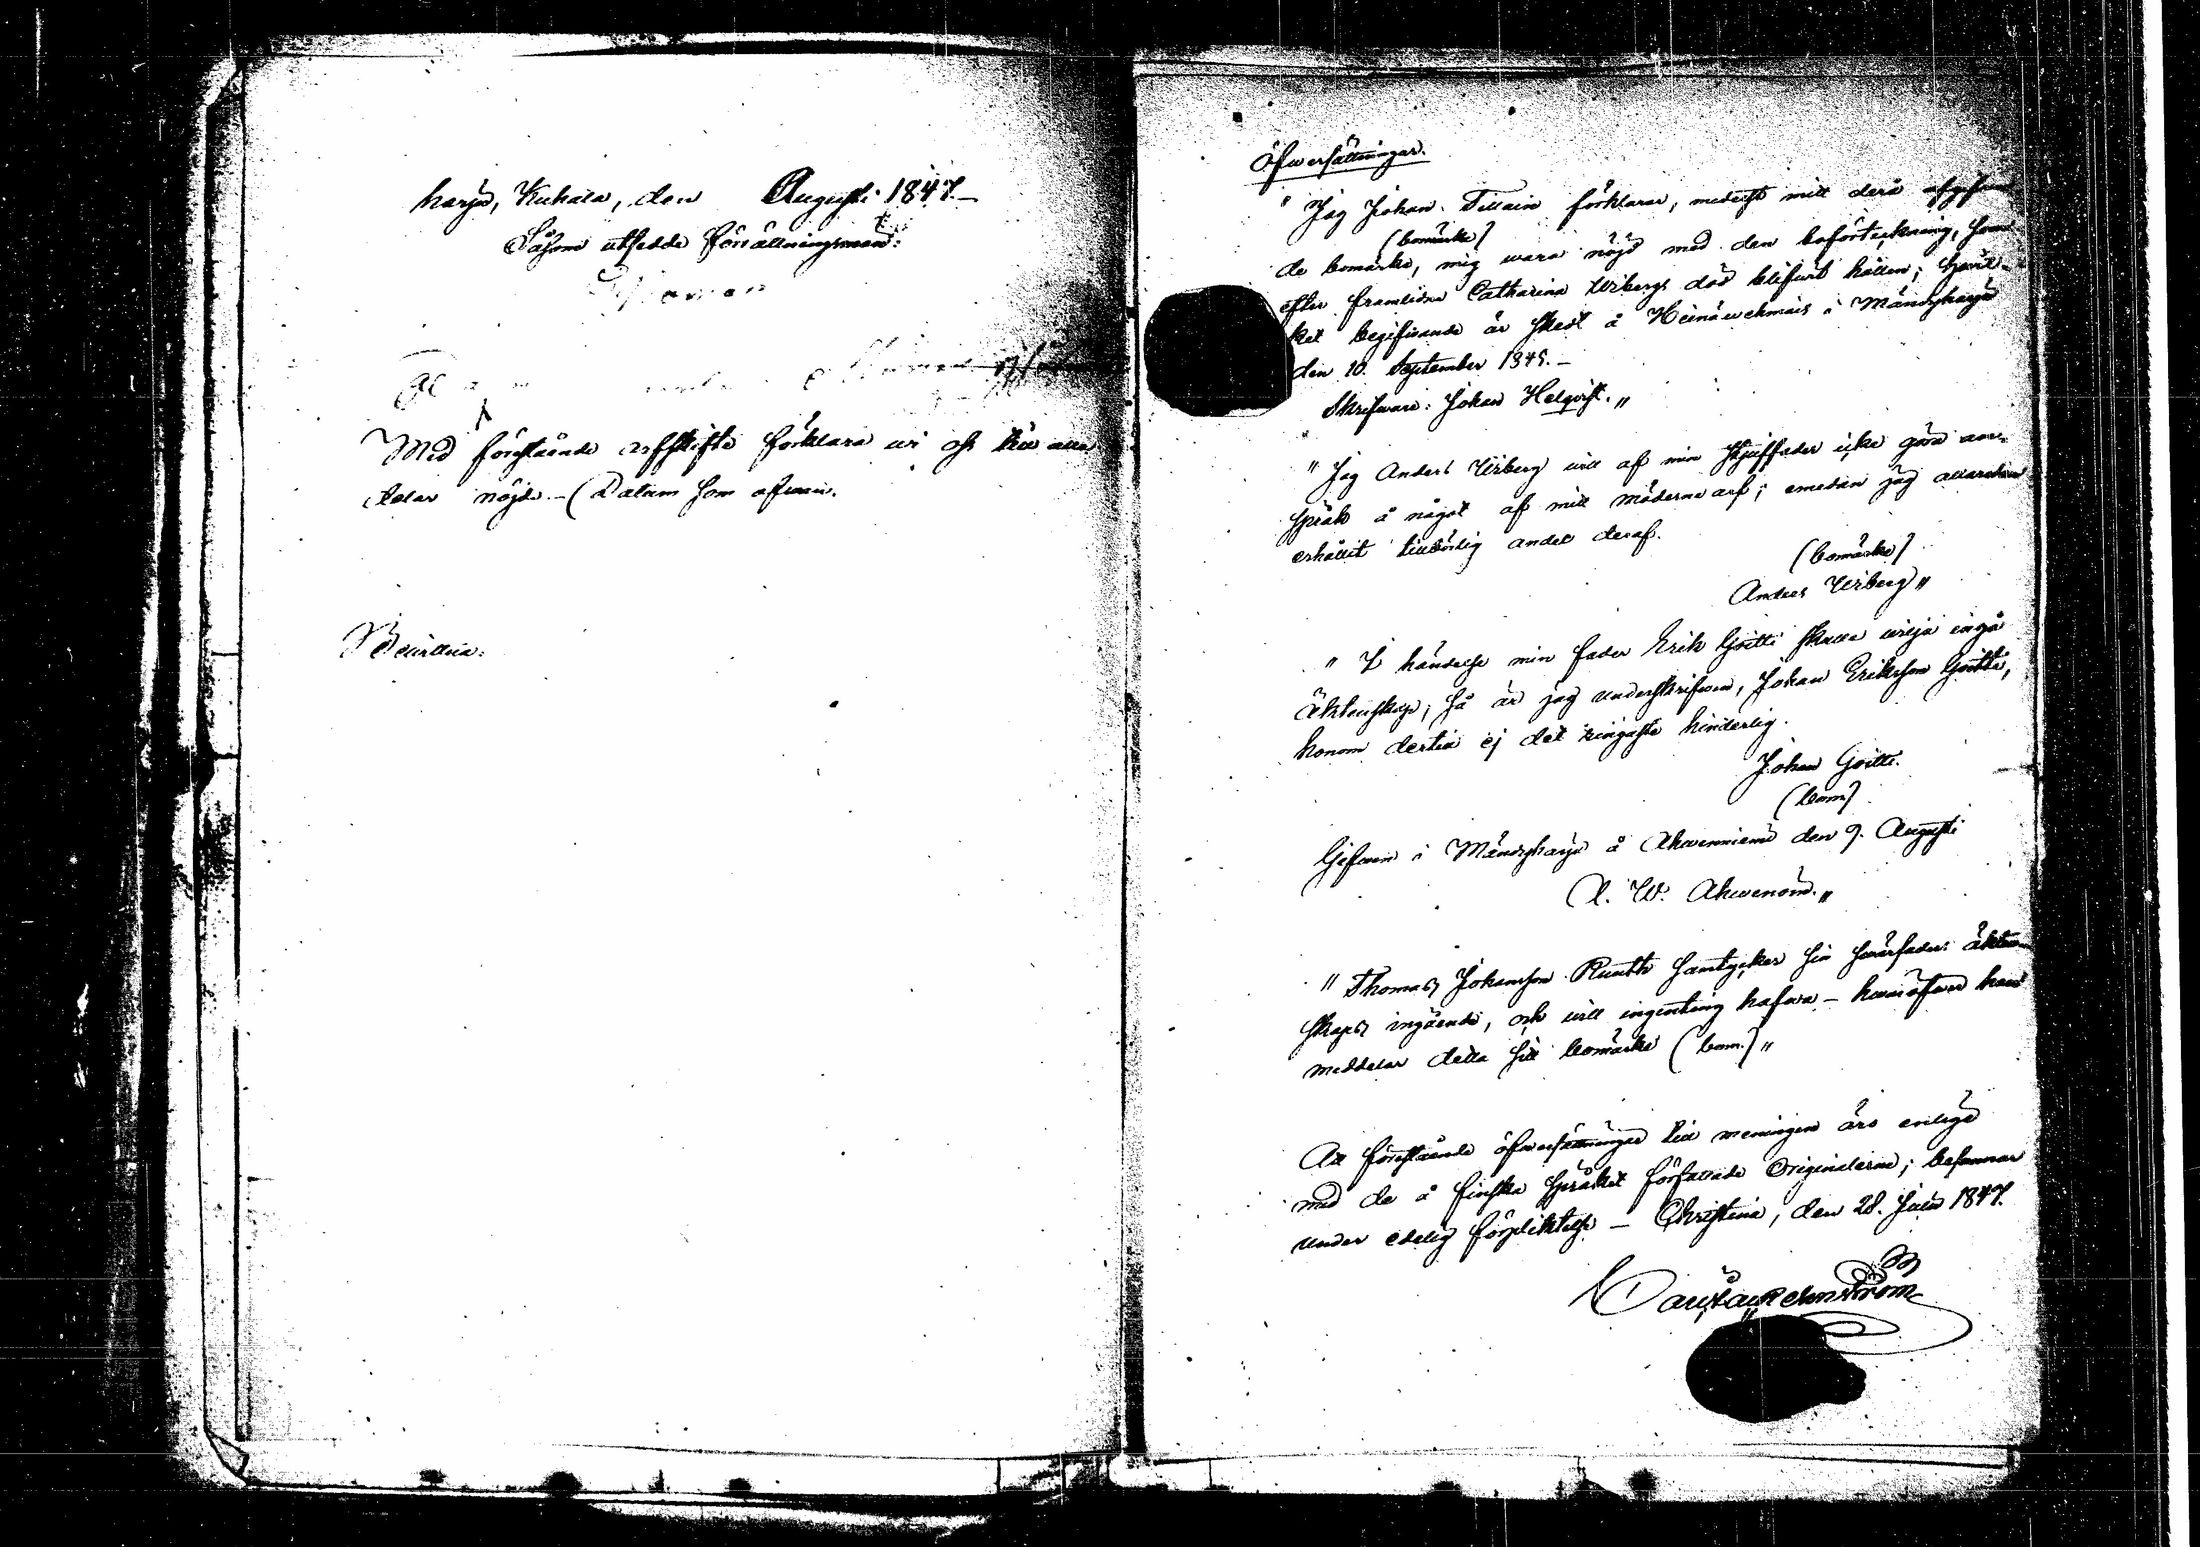 harju, Kuhala, den Augusti 1847.–
Såsom utsedde förrättningsmän:
Med förestående arfskifte förklara wi oss till alla
delar nöjde.– (Datum som ofwan.
Bewittna:
Öfwersättningar.
" Jag Johan Tellain förklarar, medelst mitt derå afgifwan-
(bomärke)
de bomärke, mig wara nöjd med den boförteckning, som
efter framlidna Catharina Wibergs död blifwit hållen; hwil-
ket begifwande är skedt å Heinäwehmais i Mäntyharju
den 10. September 1845.–
Skrifware: Johan Helqvist. "
" Jag Anders Wiberg will af min styffader icke göra an-
språk å något af mitt möderne arf; emedan jag allaredan
erhållit tillbörlig andel deraf.
(bomärke)
Anders Wiberg "
" I händelse min fader Erik Göitti skulle wilja ingå
äktenskap, så är jag underskrifwen, Johan Eriksson Göitti,
honom dertill ej det ringaste hinderlig.
Johan Göitti.
(bom.)
Gifwen i Mäntyharju å Ahwenniemi den 9. Augusti
A. W. Ahwenöini. "
" Thomas Johansson Ruuth samtycker sin swärfaders äkten-
skaps ingående, och will ingenting hafwa – hwaröfwer han
meddelar detta sitt bomärke (bom.) "
Att förestående öfwersättningar till meningen äro enliga
med de å finska språket författade Originalerne; besannar
under edelig förpliktelse – Christina, den 28. Julii 1847.